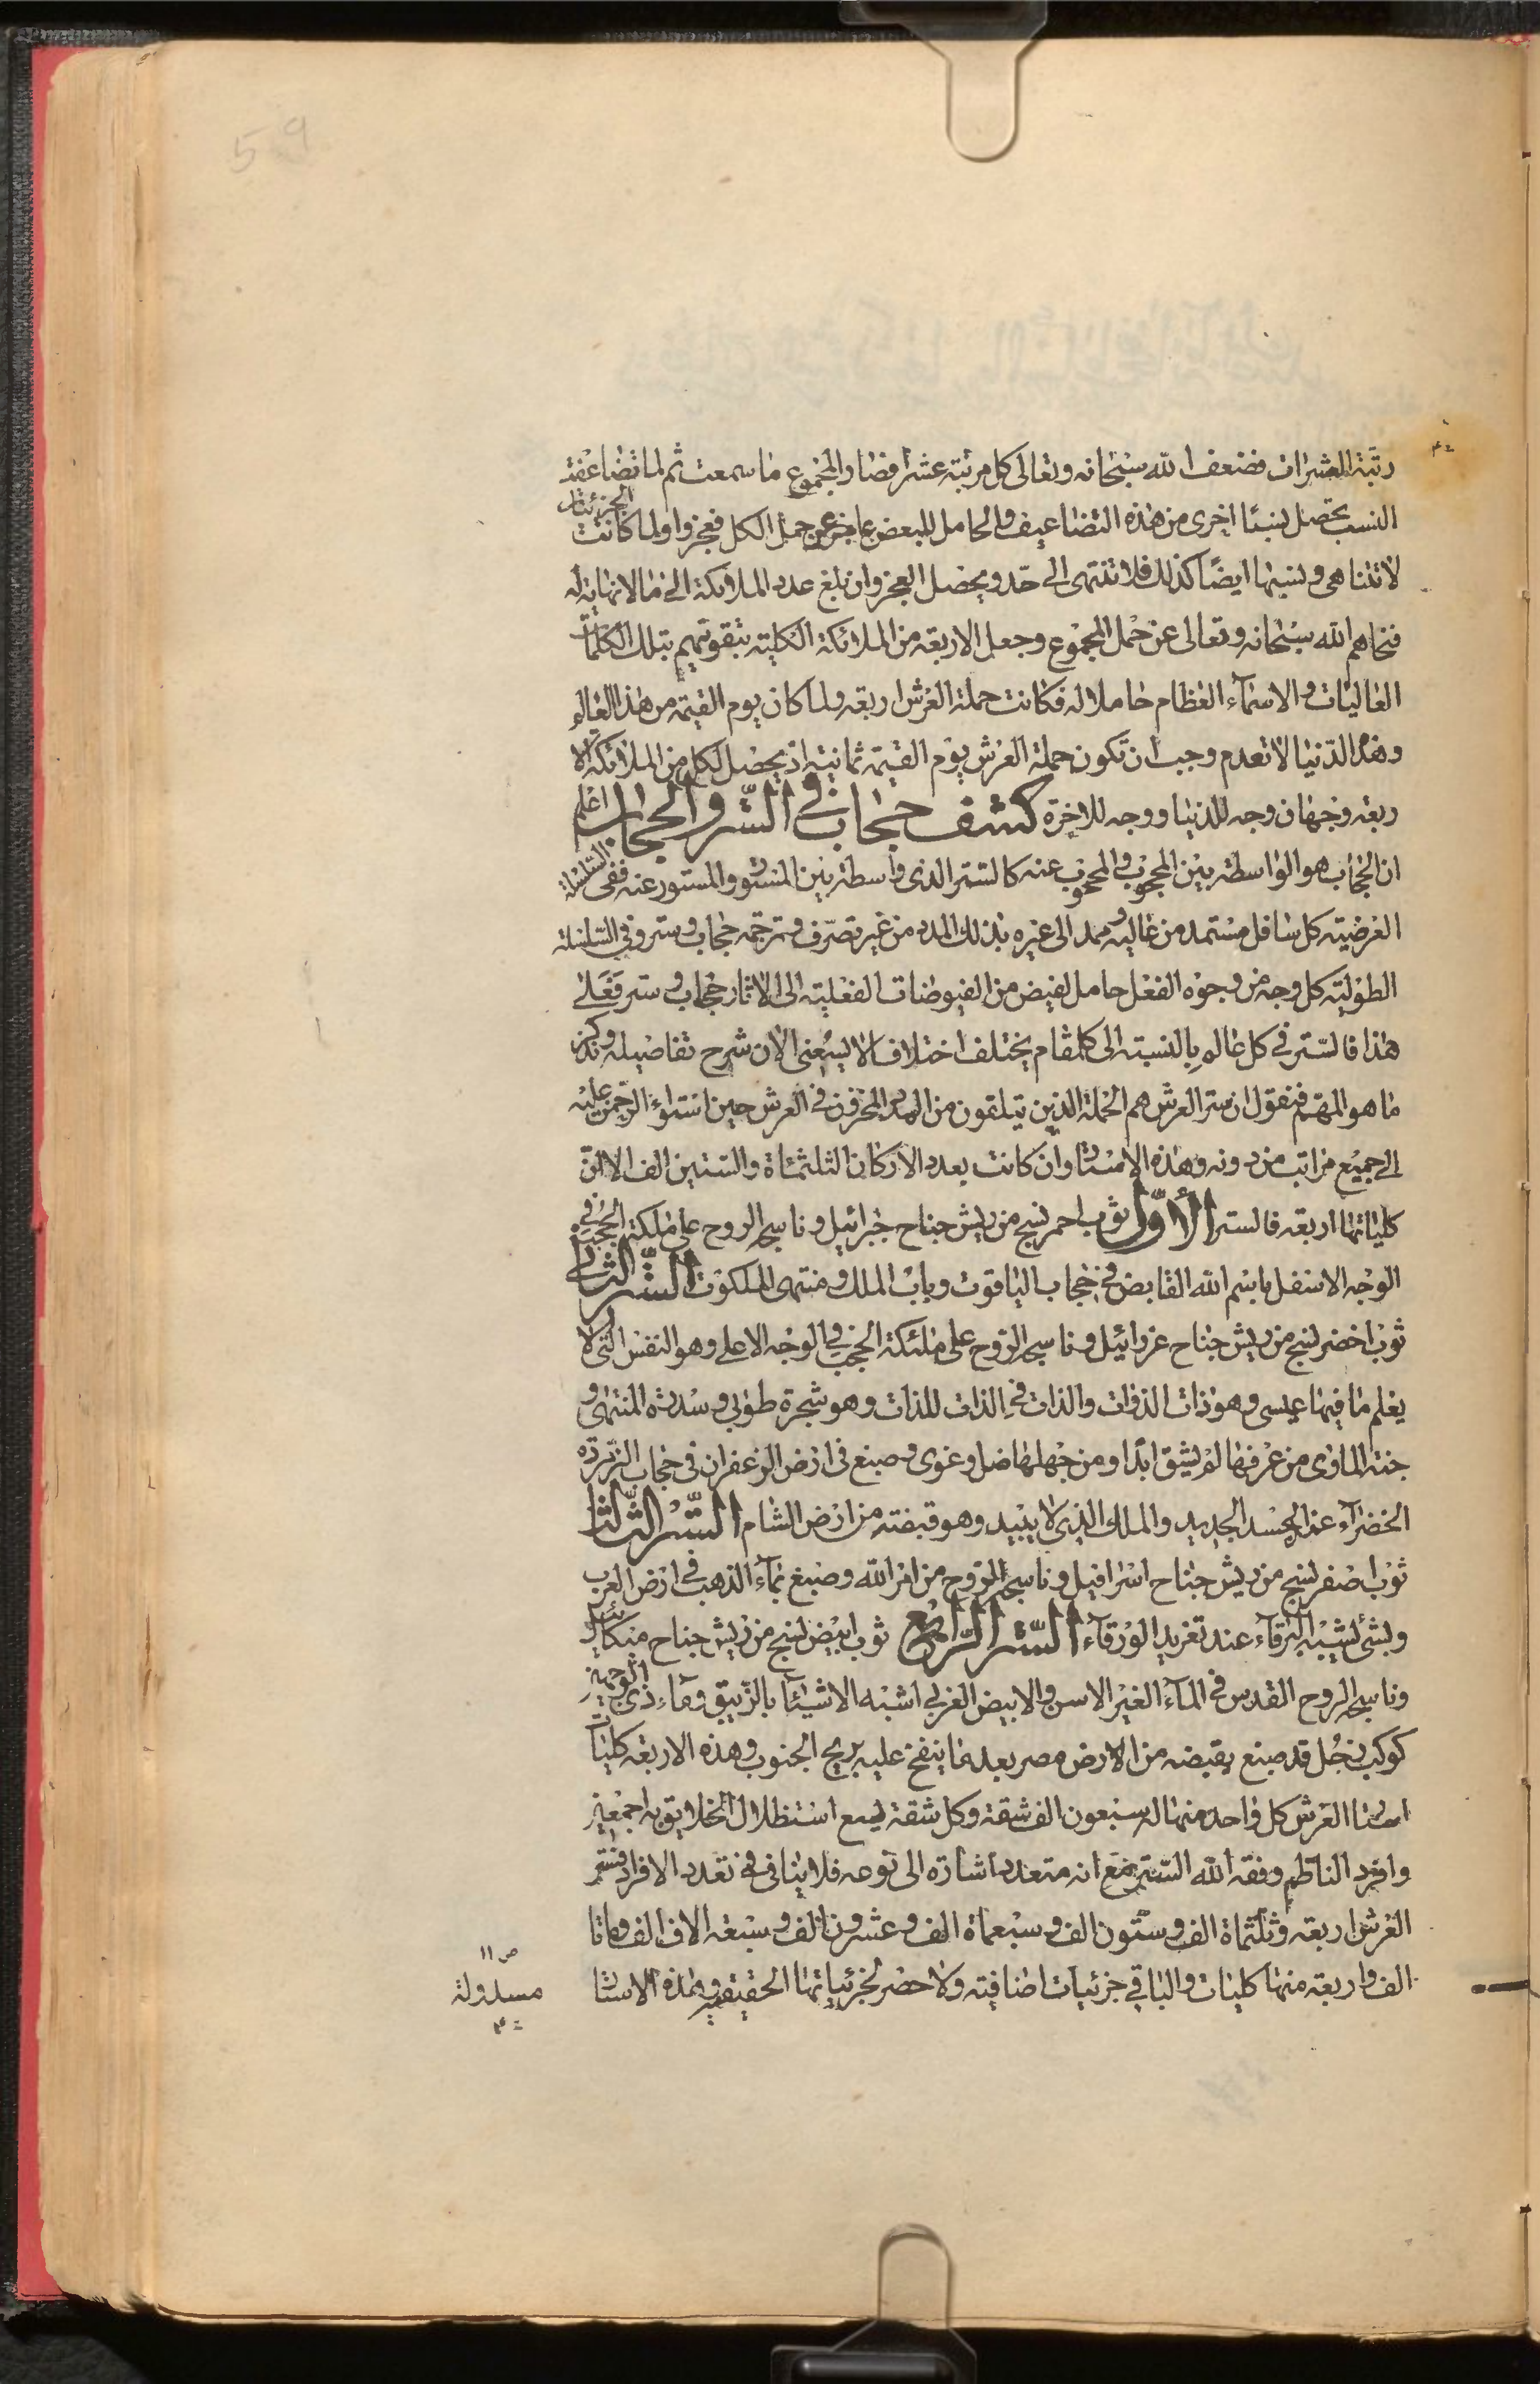 59
رتبة العشرات فضعف الله سبحانه وتعالى كل مرتبة عشرا فصار المجموع ما سمعت ثم لما تضاعفت
النسب تحصل نسبا اخرى من هذه التضاعيف والحامل للبعض عاجز عن حمل الكل فعجزوا ولما كانت الجزئيات
لا تتناهى ونسبها ايضا كذلك فلا تنتهى الى حد ويحصل العجز وان بلغ عدد الملائكة الى ما لا نهاية له
فنحاهم الله سبحانه وتعالى عن حمل المجموع وجعل الاربعة من الملائكة الكلية بتقويتهم بتلك الكلمات
العاليات والاسمآء العظام حاملا له فكانت حملة العرش اربعة ولما كان يوم القيمة من هذا العالم
وهذه الدنيا لا تعدم وجب ان تكون حملة العرش يوم القيمة ثمانية اذ يحصل لكل من الملائكة الا
ربعة وجهان وجه للدنيا ووجه للاخرة كشف حجاب في الستر والحجاب اعلم
ان الحجاب هو الواسطة بين المحجوب والمحجوب عنه كالستر الذى واسطة بين المستور والمستور عنه ففى السلسلة
العرضية كل سافل مستمد من عاليه وممد الى غيره بذلك المدد من غير تصرف وترجمة حجاب وستر وفي السلسلة
الطولية كل وجه من وجوه الفعل حامل لفيض من الفيوضات الفعلية الى الاثار حجاب وستر فعلى
هذا فالستر في كل عالم بالنسبة الى كل مقام يختلف اختلافا لا يسعنى الان شرح تفاصيله ونذكر
ما هو المهم فنقول ان ستر العرش هم الحملة الذين يتلقون من المدد المخزون في العرش حين استواء الرحمن عليه
الى جميع مراتب من دونه وهذه الاستار وان كانت بعدد الاركان الثلثمئاة والستين الف الا ان
كلياتها اربعة فالستر الأول ثوب احمر نسج من ريش جناح جبرائيل وناسجه الروح على ملئكة الحجب في
الوجه الاسفل باسم الله القابض في حجاب الياقوت وباب الملك ومنتهى الملكوت الستر الثاني
ثوب اخضر نسج من ريش جناح عزرائيل وناسجه الروح على ملئكة الحجب في الوجه الاعلى وهو النفس التى لا
يعلم ما فيها عيسى وهو ذات الذوات والذات في الذات للذات وهو شجرة طوبى وسدرة المنتهى و
جنة الماوى من عرفها لم يشق ابدا ومن جهلها ضل وغوى وصبغ في ارض الزعفران في حجاب الزبرجدة
الخضرآء عند الجسد الجديد والملك الذى لا يبيد وهو قبضة من ارض الشام الستر الثالث
ثوب اصفر نسج من ريش جناح اسرافيل وناسجه الروح من امر الله وصبغ بمآء الذهب في ارض الغرب
وبشئ يشبه البرقآء عند تغريد الورقآء الستر الرابع ثوب ابيض نسج من ريش جناح ميكائيل
وناسجه الروح القدس في المآء الغير الاسن والابيض الغربي اشبه الاشيئا بالزيبق وماء ذى الوجهين
كوكب زحل قد صبغ بقبضة من الارض مصر بعد ما ينفخ عليه بريح الجنوب وهذه الاربعة كليات
استار العرش كل واحد منها له سبعون الف شقة وكل شقة يسع استظلال الخلايق به اجمعين
وافرد الناظم وفقه الله الستر مع انه متعدد اشارة الى نوعه فلا ينافى في تعدد الافراد فستر
العرش اربعة وثلثماة الف وستون الف وسبعماة الف وعشرون الف وسبعة الاف الف وماتا
الف واربعة منها كليات والباقي جزئيات اضافية ولا حصر لجزئياتها الحقيقية وهذه الاستار
ص ١١
مسدولة